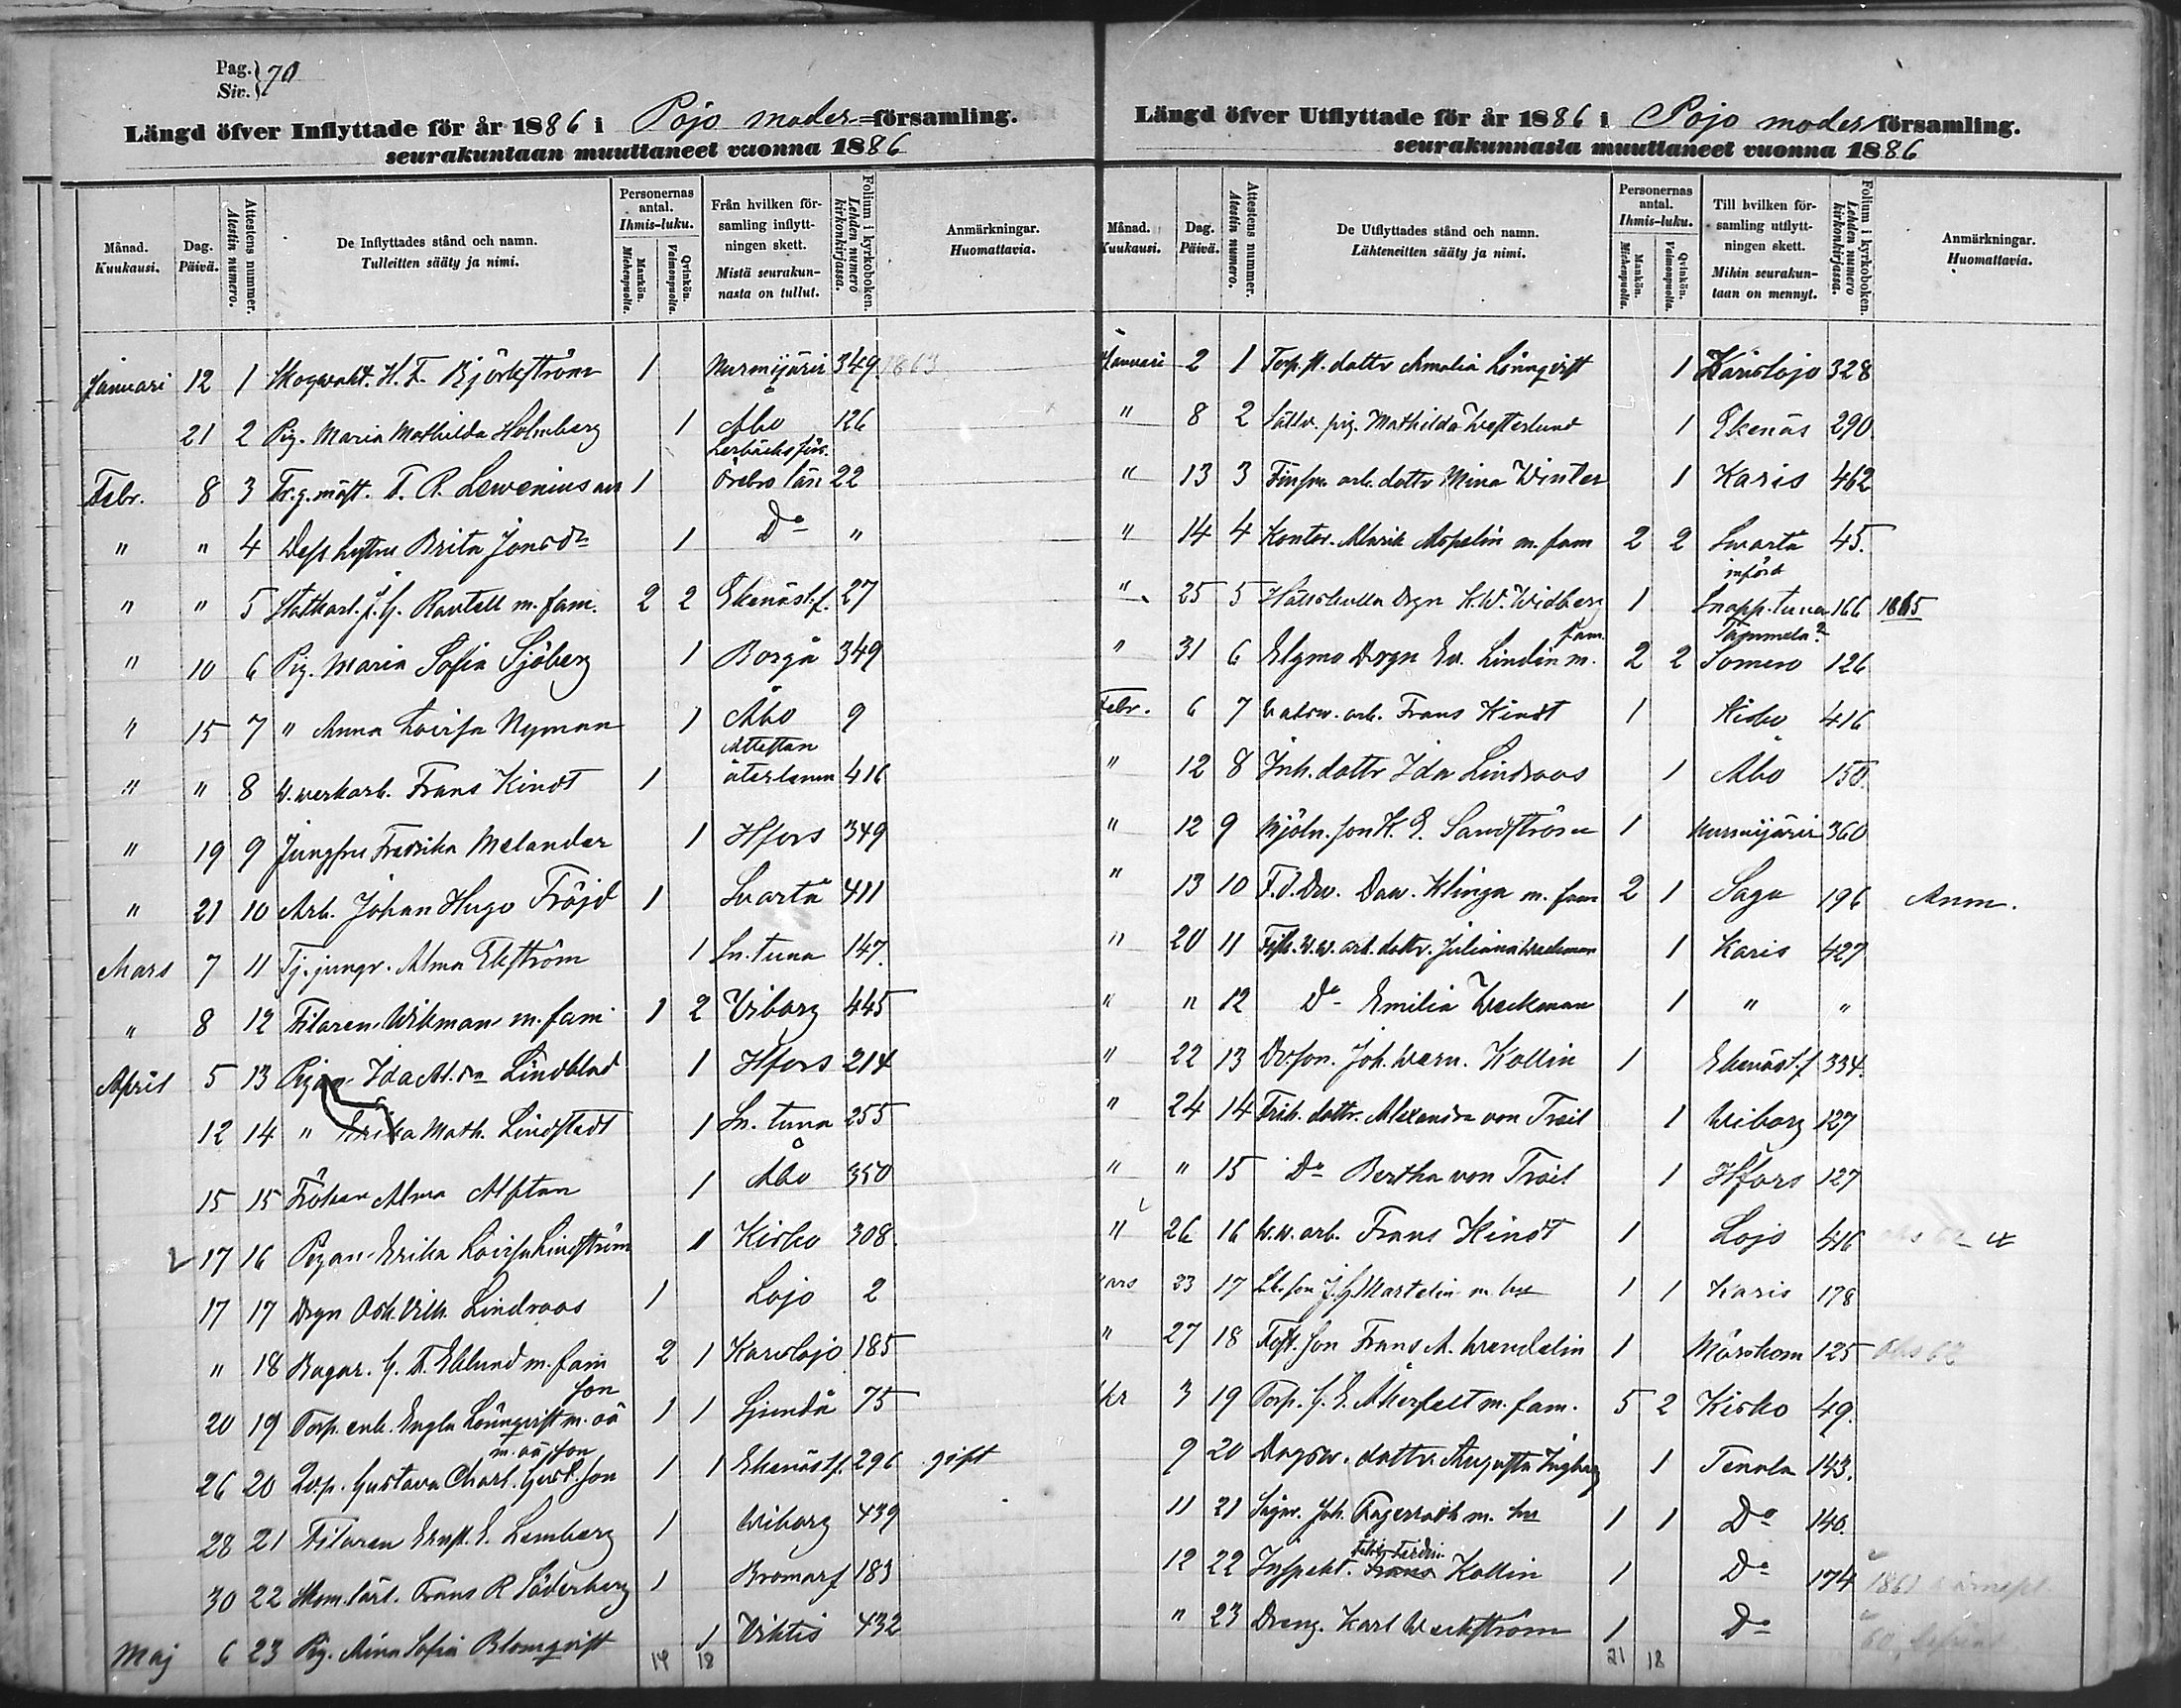 Pag. } 70
Siv.
Längd öfver Inflyttade för år 1886 i Pojo moder=församling.
seurakuntaan muuttaneet vuonna 1886
Månad. Kuukausi.
Dag. Päivä.
Attestens nummer. Atestin numero.
De Inflyttades stånd och namn. Tulleitten sääty ja nimi.
Personernas antal. Ihmis-luku.
Mankön. Miehenpuolta.
Qvinkön. Vaimonpuolta.
Från hvilken församling inflyttningen skett. Mistä seurakunnasta on tullut.
Folium i kyrkoboken. Lehden numero kirkonkirjassa.
Anmärkningar. Huomattavia.
Januari 12 1 H. F. Björkström 1 Nurmijärvi 349 1863
21 2 Pig. Maria Mathilda Holmberg 1 Åbo 126
Febr. 8 3 Tr.g.mäst. Lewenius 1 Lerbäcks förs. Örebro län 22
" " 4 Dess hustru Brita Jonsdr 1 Do "
" " 5 Statkarl. Rautell m. fam. 2 2 Ekenäs l.f. 27
" 10 6 Pig. Maria Sofia Sjöberg 1 Borgå 349
" 15 7 " Anna Lovisa Nyman 1 Åbo 9
" " 8 V. werkarb. Frans Kindt 1 Attesten återlemn 416
" 19 9 Jungfru Fredrika Melander 1 Hfors 349
" 21 10 Arb. Johan Hugo Fröjd 1 Svartå 411
Mars 7 11 Tj. jungr. Alma Ekström 1 Sn. tuna 147.
" 8 12 Filaren Wikman m. fam. 1 2 Viborg 445
April 5 13 Pigan Ida Lindblad 1 Hfors 214
12 14 " Erika Math. Lindstedt 1 Sn. tuna 255
15 15 Fröken Alma Alftan 1 Åbo 350
17 16 Pigan Erika Lovisa Lindström 1 Kisko 308
17 17 Drgn Osk. Vilh. Lindroos 1 Lojo 2
" 18 Bagar. G. A. Eklund m. fam 2 1 Karislojo 185
20 19 Torp. enk. Engla Lönnqvist m. oä son 1 1 Sjundå 75
26 20 Gustava Charl. Gust. m. oä son 1 1 Ekenäs l.f. 296 gift
28 21 Filaren Ernst. E. Lemberg 1 Wiborg 439
30 22 Skom. lärl. Frans R Söderberg 1 Bromarf 183
Maj 6 23 Pig. Aina Sofia Blomqvist 1 Vihtis 432
14 18
Längd öfver Utflyttade för år 1886 i Pojo moder församling.
seurakunnasta muuttaneet vuonna 1886
Månad. Kuukausi.
Dag. Päivä.
Attestens nummer. Atestin numero.
De Utflyttades stånd och namn. Lähteneitten sääty ja nimi.
Personernas antal. Ihmis-luku.
Mankön. Miehenpuolta.
Qvinkön. Vaimonpuolta.
Till hvilken församling utflyttningen skett. Mihin seurakuntaan on mennyt.
Folium i kyrkoboken. Lehden numero kirkonkirjassa.
Anmärkningar. Huomattavia.
Januari 2 1 dottr Amalia Lönnqvist 1 Karislojo 328
" 8 2 pig. Mathilda Westerlund 1 Ekenäs 290
" 13 3 arb. dottr Mina Winter 1 Karis 462
" 14 4 Kontor. m. fam 2 2 Svartå 45.
" 25 5 Drgn K. W. Widberg 1 införd Snapp.tuna 166 1865
" 31 6 Drgn Ev. Lindén m. fam. 2 2 Tammela? Somero 126
Febr. 6 7 arb. Frans Kindt 1 Kisko 416
" 12 8 Inh. dottr Ida Lindroos 1 Åbo 150.
" 12 9 Mjöln. son K. E. Sandström 1 Nurmijärvi 360
" 13 10 Klinga m. fam 2 1 Sagu 196 Anm.
" 20 11 arb. dottr. Juliana Weckman 1 Karis 427
" " 12 Do Emilia Weckman 1 " "
" 22 13 Joh. Wern. Kollin 1 Ekenäs l.f 334.
" 24 14 Frih. dottr. Alexandra von Troil 1 Wiborg 127
" " 15 Do Bertha von Troil 1 Hfors 127
" 26 16 W.w. arb. Frans Kindt 1 Lojo 416
ars 23 17 Martelin m. hu 1 1 Karis 178
" 27 18 son Frans A. Wendelin 1 Mörskom 125 62
3 19 Torp. G. E. Åkerfelt m. fam. 5 2 Kisko 49.
9 20 Dagsv. dottr. Augusta Ingberg 1 Tenala 143.
11 21 Joh. Fagerroth m. hu 1 1 Do 140.
12 22 Inspekt. Ferdin. Frans Kollin 1 Do 174 1861
" 23 Dreng. Karl Weckström 1 Do
21 18